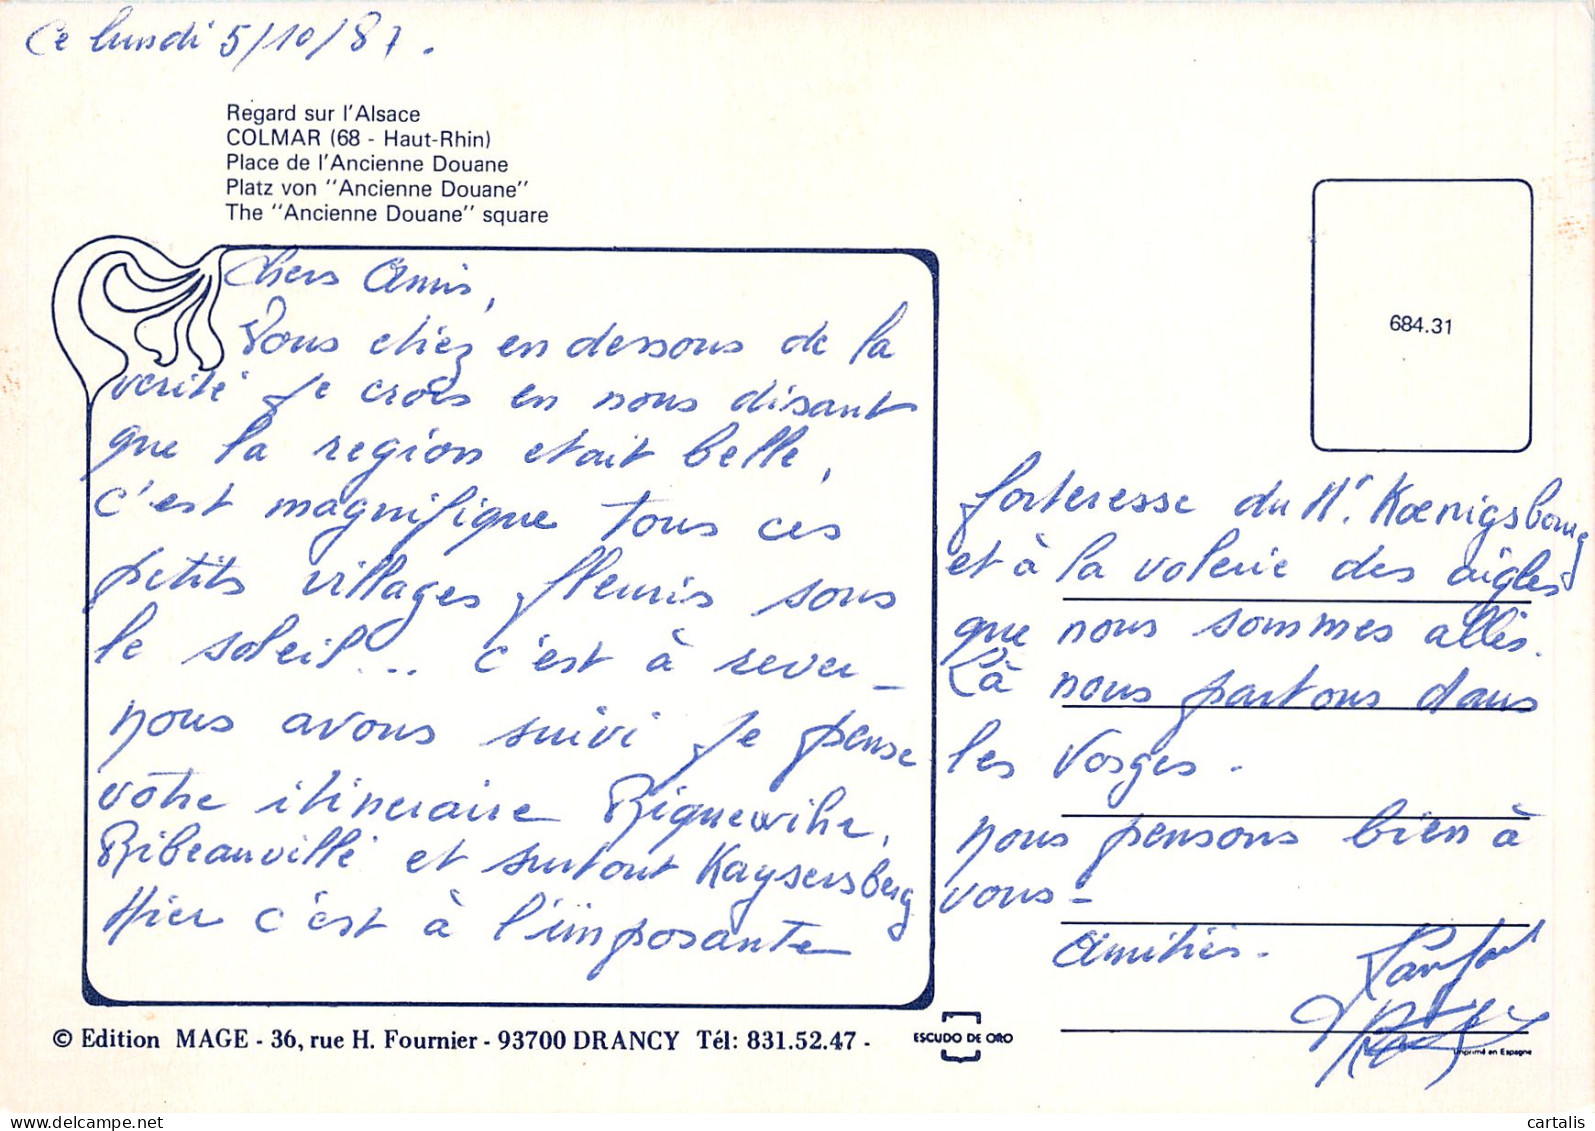 Ce lundi 5/10/87.
Regard sur l'Alsace
COLMAR (68 - Haut-Rhin)
Place de l'Ancienne Douane
Platz von "Ancienne Douane"
The "Ancienne Douane" square
Chers Amis,
Vous etiez en dessous de la
verité je crois en nous disant
que la region etait belle,
c'est magnifique tous ces
petits villages fleuris sous
le soleil... c'est à rever -
nous avons suivi je pense
votre itineraire Riquewihr,
Ribeauvillé et surtout Kaysersberg
Hier c'est à l'imposante
684.31
forteresse du Ht. Kœnigsbourg
et à la volerie des aigles
que nous sommes allés.
Là nous partons dans
les Vosges -
nous pensons bien à
vous -
Amitiés -
© Edition MAGE - 36, rue H. Fournier - 93700 DRANCY Tél: 831.52.47 -
ESCUDO DE ORO
Imprimé en Espagne
cartalis